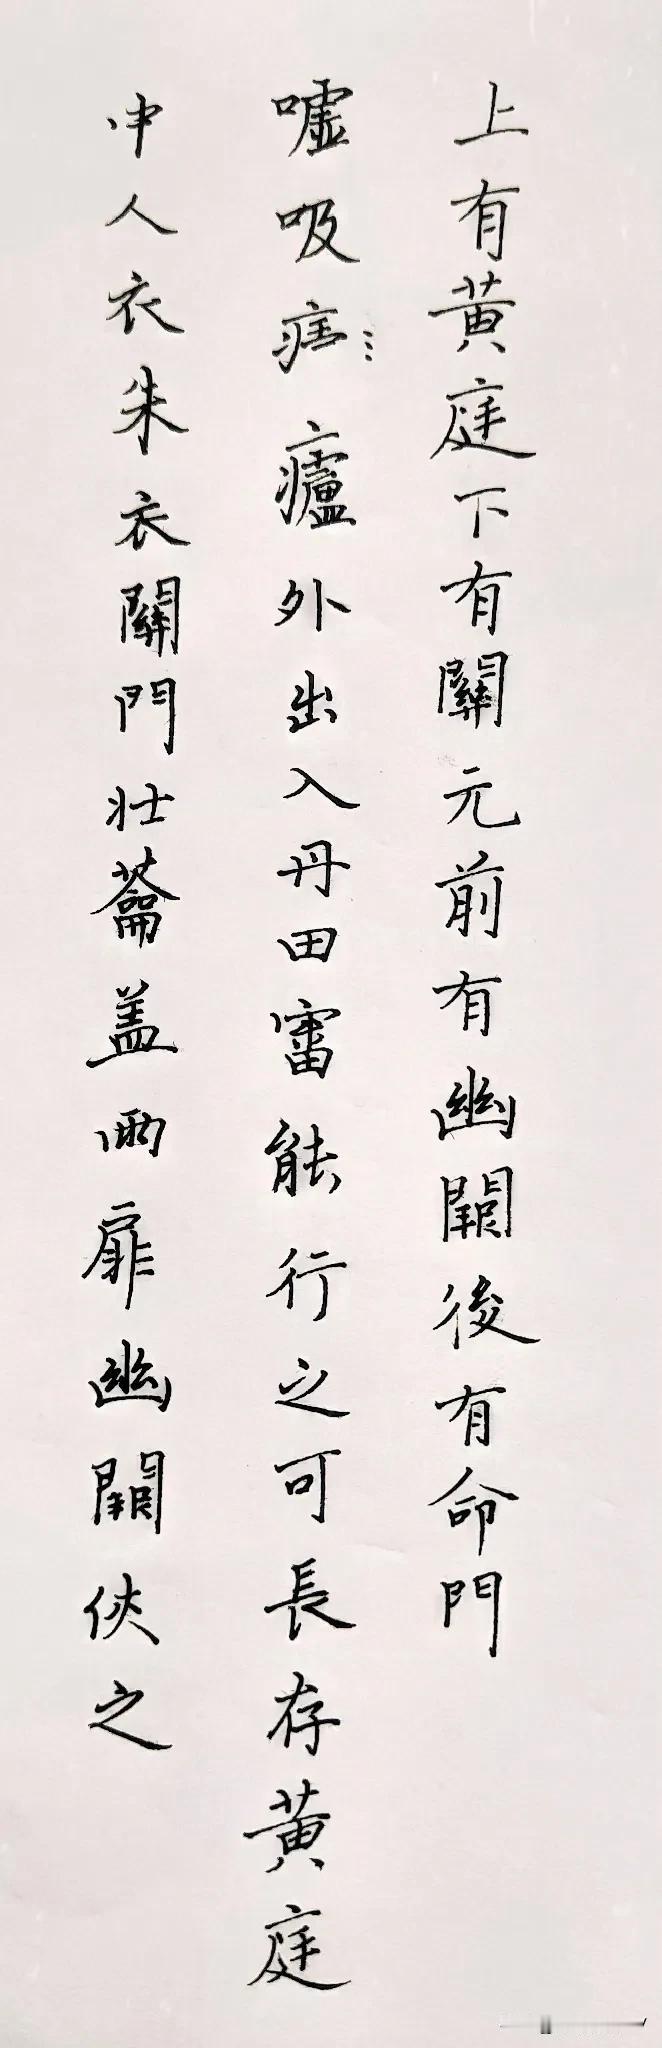 上有黄庭下有關元前有幽闕後有命門
嘘吸廬外出入丹田審能行之可長存黄庭
中人衣朱衣關門壯蘥盖兩扉幽闕俠之